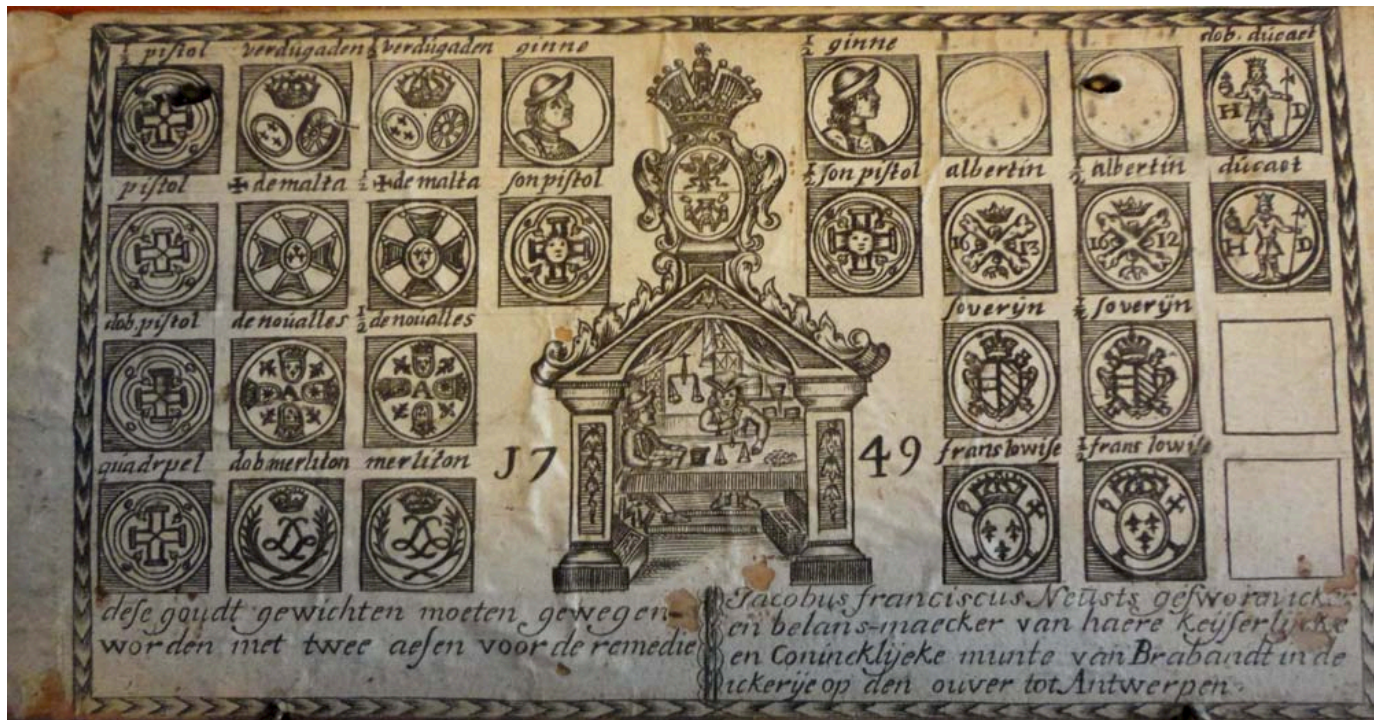 ½ pistol verdúgaden ½ verdúgaden ginne ½ ginne dob. dúcaet
H D
pistol ✠ de malta ½ ✠ de malta son pistol ½ son pistol albertin ½ albertin dúcaet
16 13 16 12 H D
dob. pistol de noúalles ½ de noualles soverÿn ½ soverÿn
quadrpel dob merliton merliton J7 49 frans lowise ½ frans lowise
dese goudt gewichten moeten gewegen
worden met twee aesen voor de remedie
Jacobus franciscus Neusts gesworen
en belans-maecker van haere Keyserlycke
en Conincklijcke munte van Brabandt in de
ickerije op den ouver tot Antwerpen